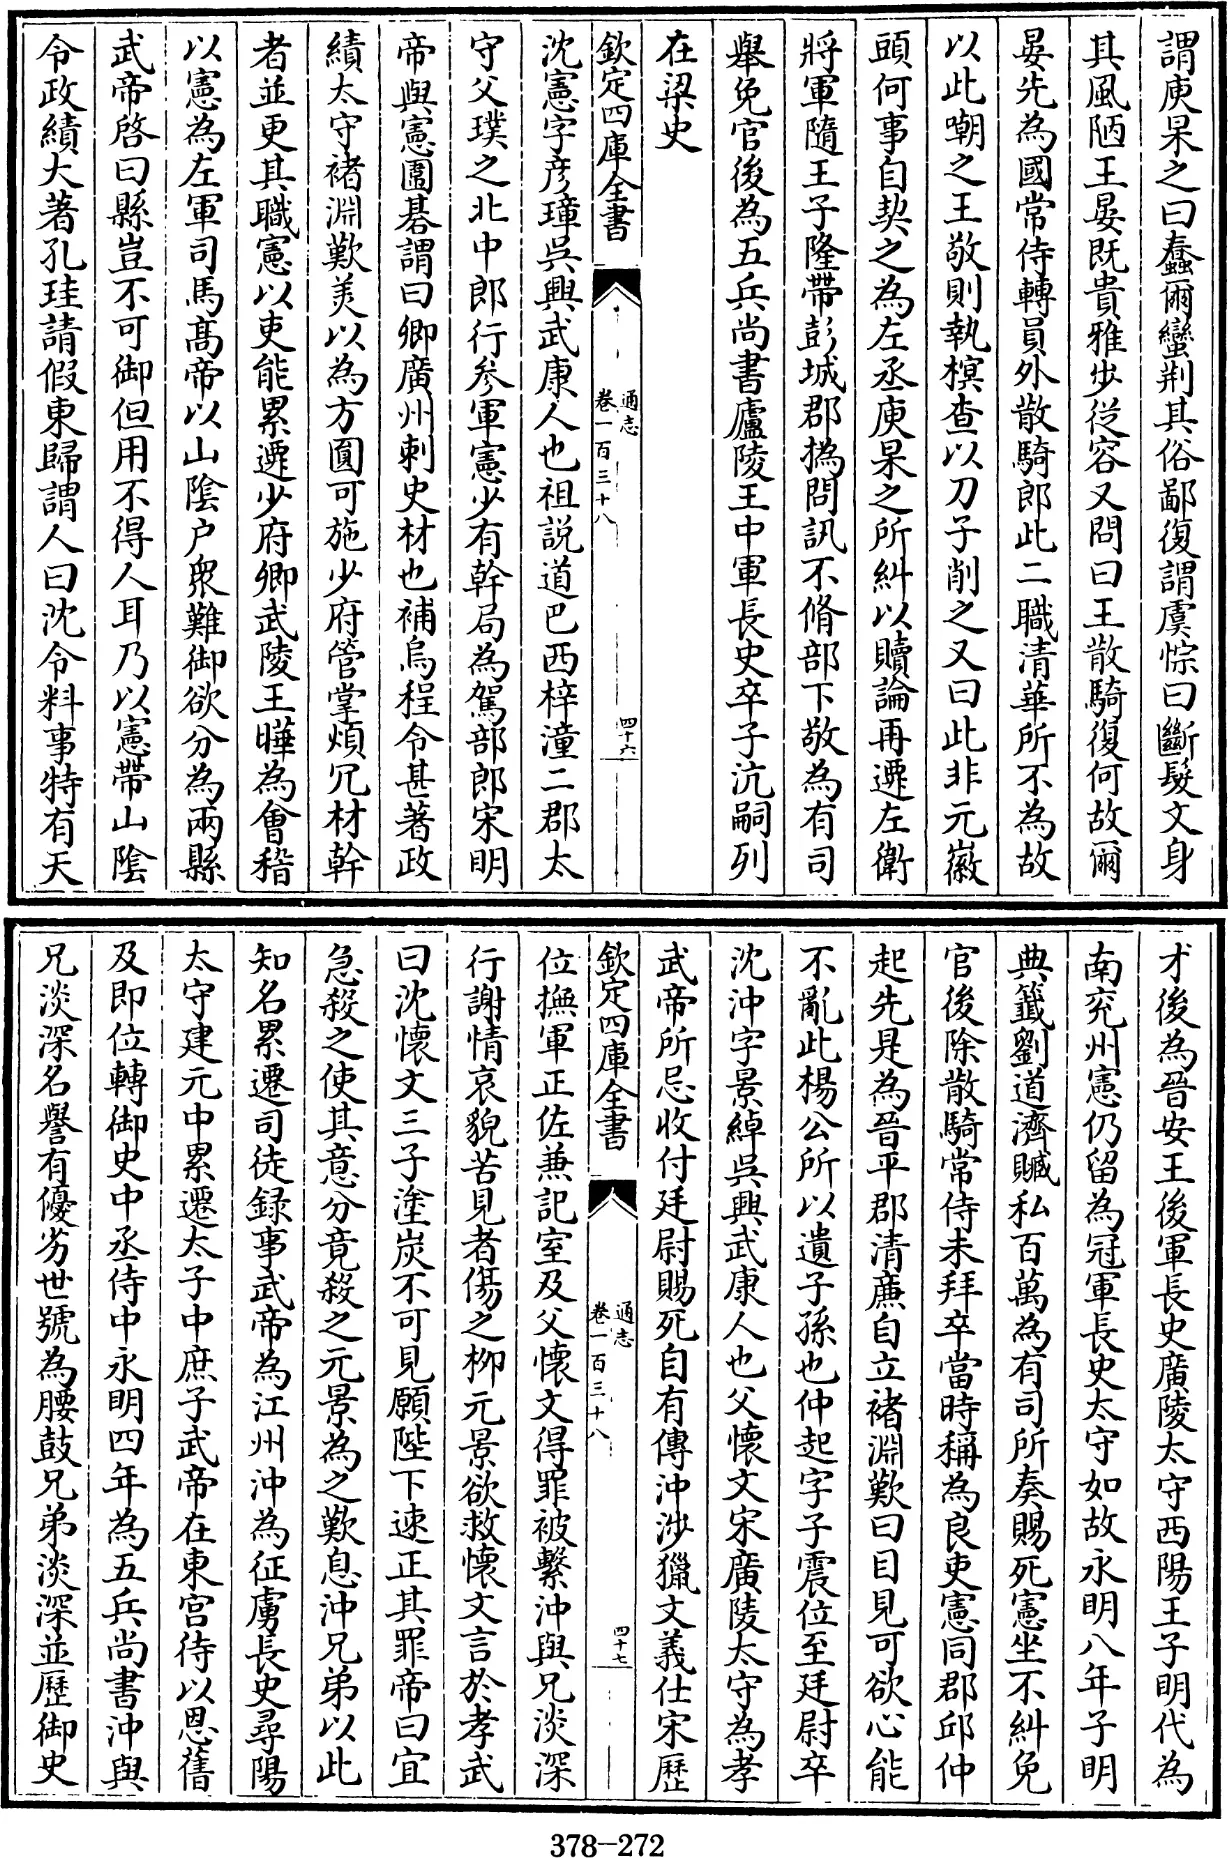 謂庾杲之曰蠢爾蠻荆其俗鄙復謂虞悰曰斷髮文身
其風陋王晏既貴雅步從容又問曰王散騎復何故爾
晏先為國常侍轉員外散騎郎此二職清華所不為故
以此嘲之王敬則執榠查以刀子削之又曰此非元徽
頭何事自契之為左丞庾杲之所糾以贖論再遷左衛
將軍隨王子隆帶彭城郡撝問訊不脩部下敬為有司
舉免官後為五兵尚書廬陵王中軍長史卒子沆嗣列
在梁史
欽定四庫全書
通志
卷一百三十八
四十六
沈憲字彦璋吳興武康人也祖説道巴西梓潼二郡太
守父璞之北中郎行參軍憲少有幹局為駕部郎宋明
帝與憲圍碁謂曰卿廣州刺史材也補烏程令甚著政
績太守褚淵歎美以為方圓可施少府管掌煩冗材幹
者並更其職憲以吏能累遷少府卿武陵王曄為會稽
以憲為左軍司馬髙帝以山陰户衆難御欲分為兩縣
武帝啓曰縣豈不可御但用不得人耳乃以憲帶山陰
令政績大著孔珪請假東歸謂人曰沈令料事特有天
才後為晉安王後軍長史廣陵太守西陽王子明代為
南兖州憲仍留為冠軍長史太守如故永明八年子明
典籤劉道濟贓私百萬為有司所奏賜死憲坐不糾免
官後除散騎常侍未拜卒當時稱為良吏憲同郡邱仲
起先是為晉平郡清廉自立褚淵歎曰目見可欲心能
不亂此楊公所以遺子孫也仲起字子震位至廷尉卒
沈沖字景綽吳興武康人也父懷文宋廣陵太守為孝
武帝所忌收付廷尉賜死自有傳沖涉獵文義仕宋歷
欽定四庫全書
通志
卷一百三十八
四十七
位撫軍正佐兼記室及父懷文得罪被繫沖與兄淡深
行謝情哀貌苦見者傷之柳元景欲救懷文言於孝武
曰沈懷文三子塗炭不可見願陛下速正其罪帝曰宜
急殺之使其意分竟殺之元景為之歎息沖兄弟以此
知名累遷司徒録事武帝為江州沖為征虜長史尋陽
太守建元中累遷太子中庶子武帝在東宮待以恩舊
及即位轉御史中丞侍中永明四年為五兵尚書沖與
兄淡深名譽有優劣世號為腰鼓兄弟淡深並歷御史
378-272